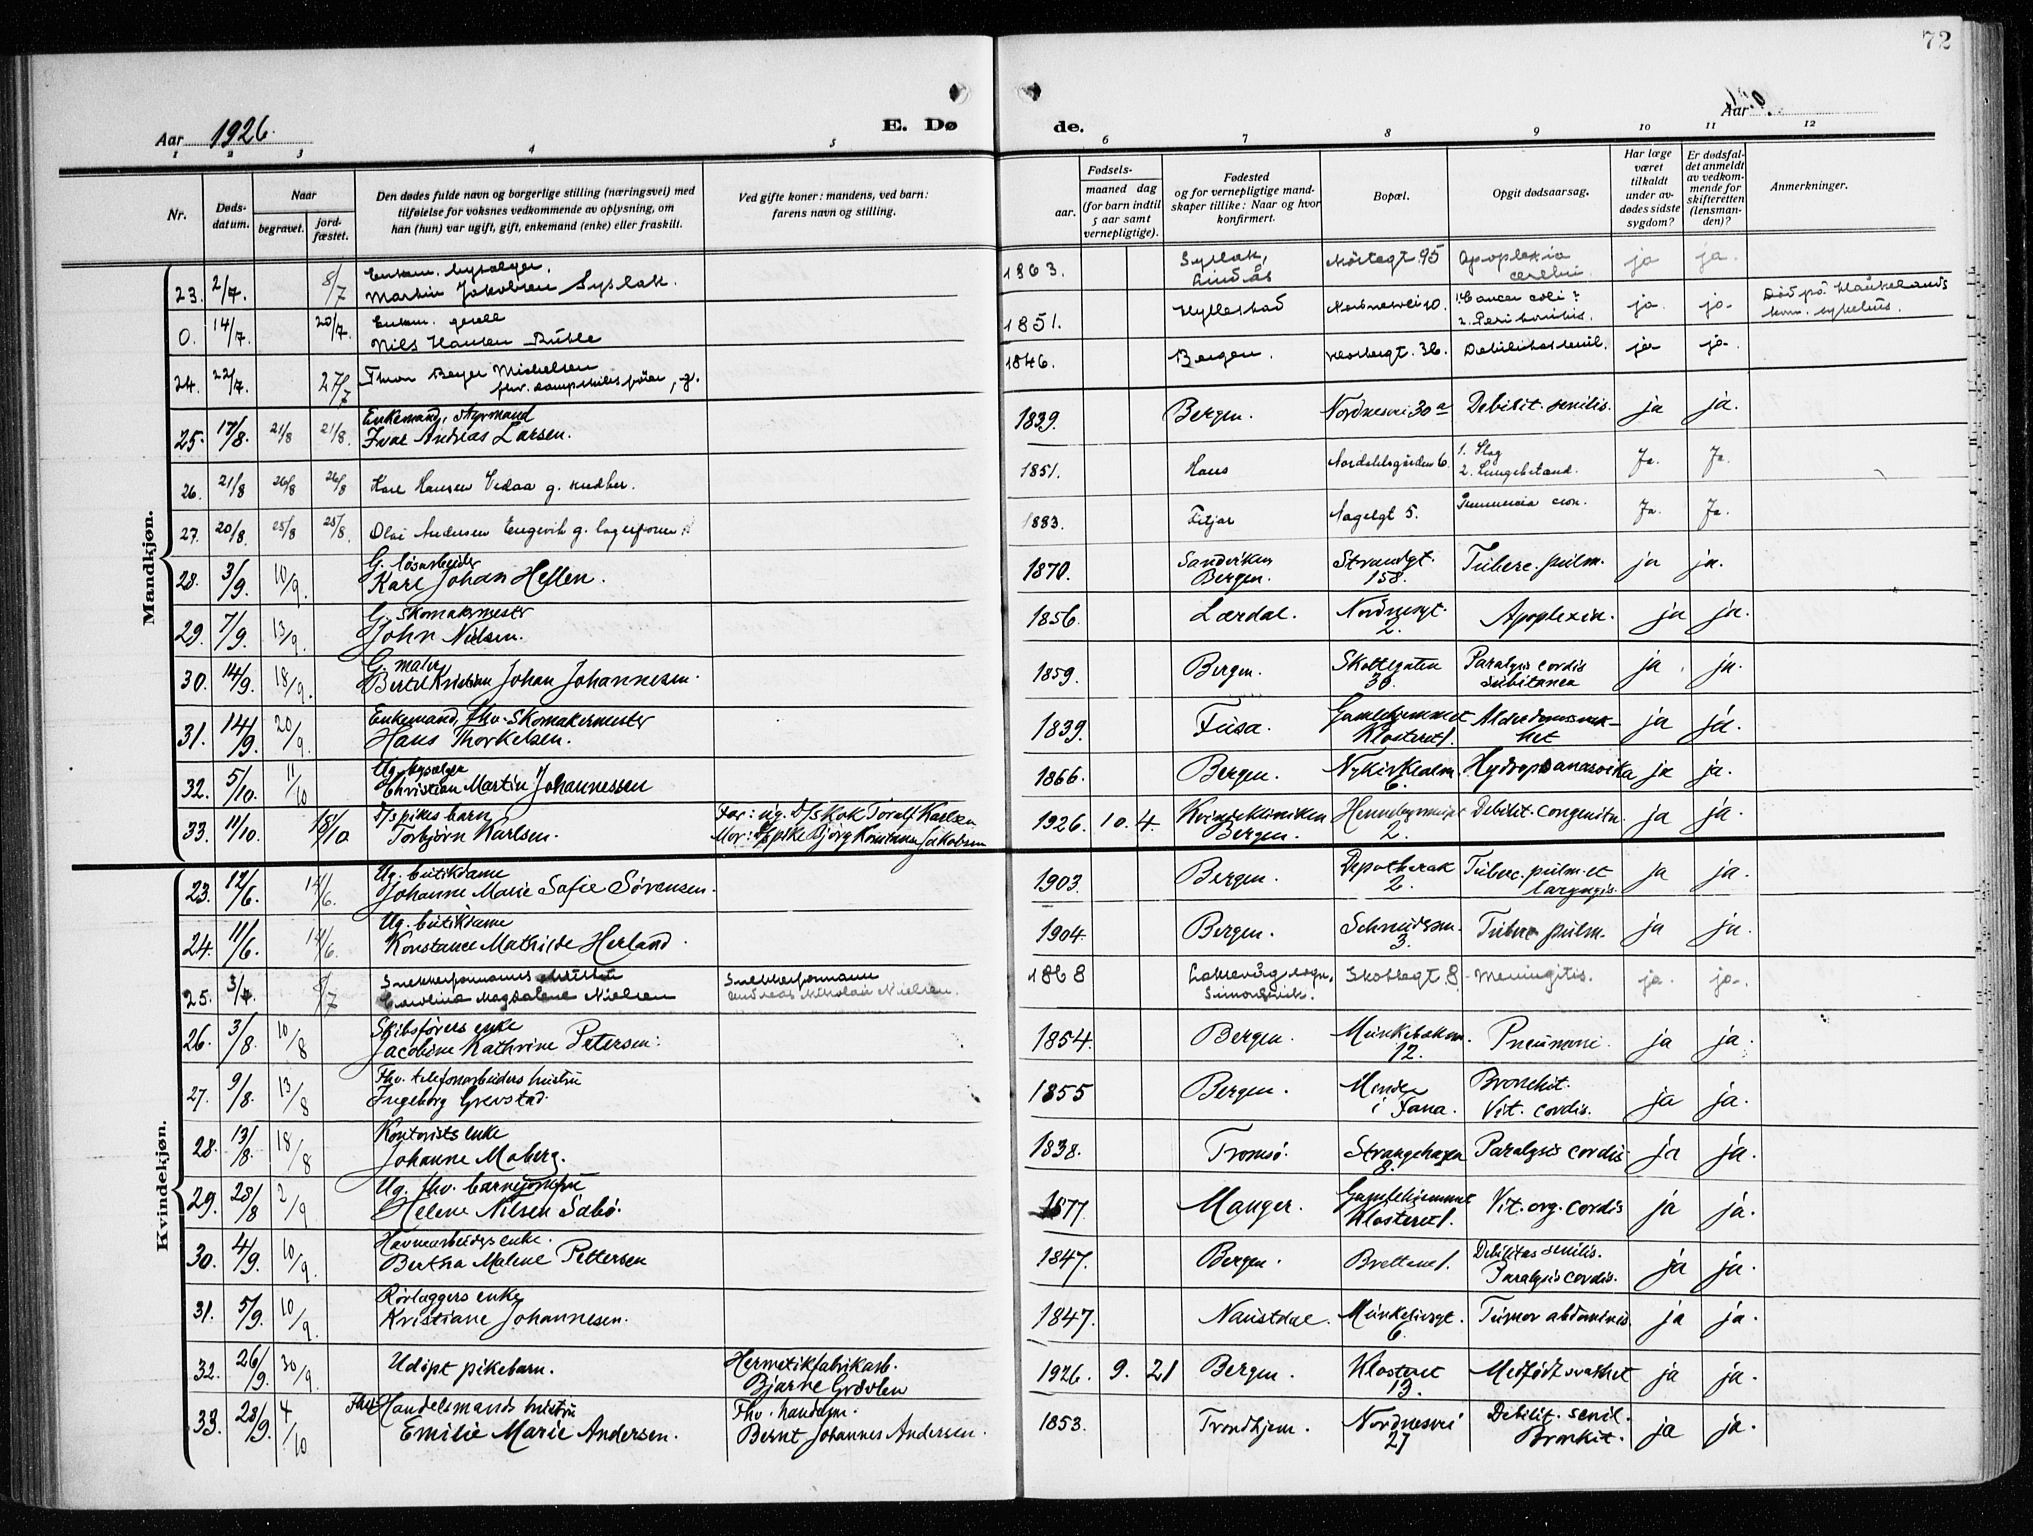 72
Aar 1926.
E. Dø
de.
Aar
1 2 3 4 5 6 7 8 9 10 11 12
Nr.
Døds-
datum.
Naar
begravet.
jord-
fæstet.
Den dødes fulde navn og borgerlige stilling (næringsvei) med
tilføielse for voksnes vedkommende av oplysning, om
han (hun) var ugift, gift, enkemand (enke) eller fraskilt.
Ved gifte koner: mandens, ved barn:
farens navn og stilling.
Fødsels-
aar.
maaned dag
(for barn indtil
5 aar samt
vernepligtige).
Fødested
og for vernepligtige mand-
skaper tillike: Naar og hvor
konfirmert.
Bopæl.
Opgit dødsaarsag.
Har læge
været
tilkaldt
under av-
dødes sidste
sygdom?
Er dødsfal-
det anmeldt
av vedkom-
mende for
skifteretten
(lensman-
den)?
Anmerkninger.
Mandkjøn.
23. 2/7. 8/7 Enkem. bysælger. Martin Jakobsen Syslak. 1863. Syslak, Lindås 95 Apoplexia cerebri ja ja.
0. 14/7. 20/7. Enkem. Nils Hansen 1851. Hyllestad Nordnesvei 10. 1. Cancer coli? 2. Peritonitis. ja. ja. Død på Haukelands kom. sykehus.
24. 22/7. 27/7 Thron Beyer Michelsen fhv. , g. 1846. Bergen. Klostergt. 36. Debilitas senil. ja ja.
25. 17/8. 21/8 21/8. Enkemand, styrmand Ivar Andreas Larsen. 1839. Bergen. Nordnesvei 30 a Debilit. senilis. ja ja.
26. 21/8 26/8 26/8 Karl Hansen Vedaa g. 1851. Haus Nordahlsgården 6. 1. Slag 2. Lungebetænd. Ja. Ja.
27. 20/8. 25/8 25/8. Olai Andersen Engevik g. 1883. Fitjar Nagelgt 5. Ja. Ja.
28. 3/9. 10/9. G. løsarbeider Karl Johan Hellen. 1870. Sandviken Bergen. Strandgt. 158. Tuberc. pulm. ja ja.
29. 7/9. 13/9. G. Skomakermester John Nielsen. 1856. Lærdal. Nordnesgt. 2. Apoplexia. ja ja.
30. 14/9. 18/9. G. maler Bertel Kristian Johan Johannesen. 1859. Bergen. Skottegaten 30. Paralysis cordis subitanea ja ja.
31. 14/9. 20/9. Enkemand, fhv. Skomakermester Hans Thorkelsen. 1839. Fusa. Gamlehjemmet Klosteret 1. Alderdomssvak-het ja ja.
32. 5/10. 11/10 Ug. bysælger Christian Martin Johannessen 1866. Bergen. Nykirkealm. 6. Hydrops anasarka ja ja.
33. 11/10. 15/10 D/s pikes barn Torbjørn Karlsen. Far: ug. D/s Kok Toralf Karlsen Mor: D/s pike Bjørg Konstanse Jakobsen 1926. 10. 4. Kvindeklinikken Bergen. 2. Debilit. congenita. ja ja.
Kvindekjøn.
23. 12/6. 14/6. Ug. butikdame Johanne Marie Sofie Sørensen. 1903. Bergen. Depotberak 2. Tuberc. pulm. et laryngis. ja ja.
24. 11/6. 14/6. Ug. butikdame Konstance Mathilde Herland. 1904. Bergen. 3. Tuberc. pulm. ja ja.
25. 3/7. 8/7 Snekkerformanns hustru Carolina Magdalene Nielsen Snekkerformann Andreas Nikolai Nielsen. 1868 Laksevåg sogn, Simonsvik. Skottegt 8. Meningitis. ja. ja.
26. 3/8. 10/8 Skibsførers enke Jacobine Kathrine Petersen. 1854. Bergen. Munkebakken. 12. Pneumoni. ja ja.
27. 9/8. 13/8 Fhv. telefonarbeiders hustru Ingeborg Grevstad. 1855 Bergen. Minde i Fana. Bronchit. Vit. cordis. ja ja.
28. 13/8. 18/8 Kontorists enke Johanne Moberg. 1838. Tromsø. Strangehagen 8. Paralysis cordis ja ja.
29. 28/8 2/9 Ug. fhv. barnejomfru Helene Nilsen Sabø. 1877. Manger. Gamlehjemmet Klosteret 1. Vit. org. cordis ja ja.
30. 4/9. 10/9. Havnearbeiders enke. Bertha Malene Pettersen 1847. Bergen. Brettene 1. Debilitas senilis. Paralysis cordis. ja ja.
31. 5/9. 10/9. Rørlæggers enke Kristiane Johannesen. 1847. Naustdal. Munkelivsgt. 6. Tumor abdominis ja ja.
32. 26/9. 30/9. Udøpt pikebarn. Hermetikfabrikarb. Bjarne Grøvlen 1926. 9. 21 Bergen. Klosteret 13. Medfødt svakhet ja ja.
33. 28/9. 4/10 Fhv. Handelsmands hustru Emilie Marie Andersen. Fhv. handelsm. Bernt Johannes Andersen. 1853. Trondhjem. Nordnesvei 27 Debilit. senil. Bronkit. ja ja.